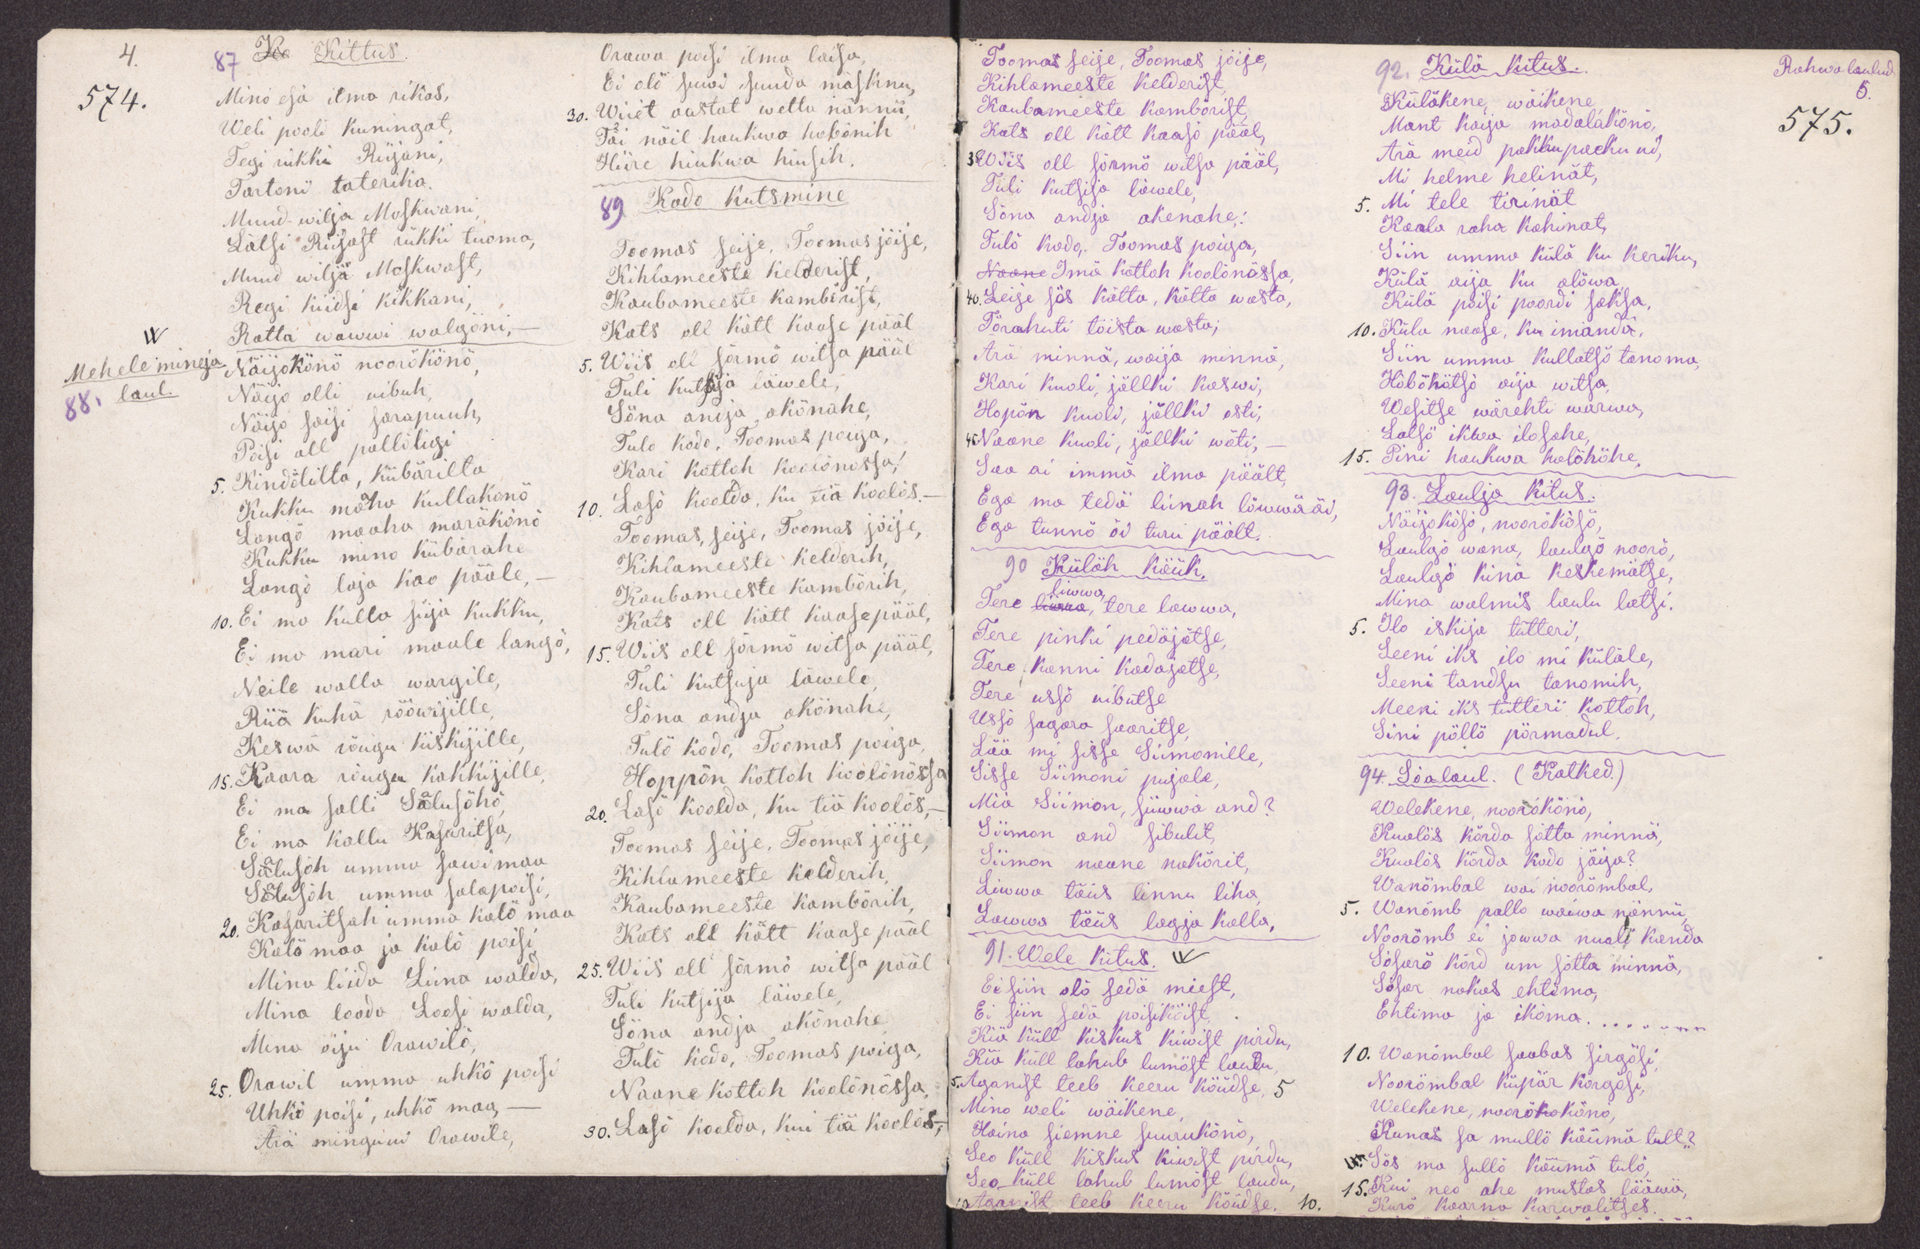 4.
574.
87 Kittus.
Mino esä ilma rikas,
Weli pooli kuningat,
Tegi rükki Riijani,
Tartoni taterika.
Muud wilja Moskwani,
Lätsi Riijast rükki tuoma,
Muud wiljä Moskwast,
Regi küdsi kikkani,
Ratta wawwi walgöni, —
W
Mehele mineja
laul.
88.
Näijokönö noorökönö,
Näijo olli uibuh,
Näijo saisi sarapuuh,
Poisi all pallõligi
5. Kindölilta, kübärilta
Kukku maha kullakenö
Langö maaha maräkönö
Kukku mino kübärahe
Langö laja kao pääle, —
10. Ei ma kulla süja kukku,
Ei ma mari maale langö,
Neile walla wargile,
Rüä kuhä rööwijille,
Keswä rõugu kiskijille,
15. Kaara rõugu kakkijille,
Ei ma salli Sälusöhö,
Ei ma kallu Kasaritsa,
Sälusöh umma sawimaa
Sälusöh umma salapoisi,
20. Kasaritsah umma kalö maa
Kalö maa ja kalö poisi
Mina liida Liina walda,
Mina looda Loosi walda,
Mina öiju Orawilö,
25. Orawil umma uhkö poisi
Uhkö poisi, uhkö maa, —
Ärä minguni Orawile,
Orawa poisi ilma laisa,
Ei olö suwi suuda mäsknu,
30. Wiit aastat wettä nännü,
Täi näil haukwa habönih
Hiire hiukwa hiusih.
89 Kodo kutsmine
Toomas seije, Toomas jöije,
Kihlameeste kelderist,
Kaubameeste kambörist,
Kats oll kätt kaase pääl
5. Wiis oll sörmö witsa pääl
Tuli kutsja läwele,
Söna andja akönahe,
Tulö kodo, Toomas poiga,
Kari kottoh koolönössa!
10. Lasö koolda, ku tiä koolös. —
Toomas, seije, Toomas jöije,
Kihlameeste kelderih,
Kaubameeste kambörih,
Kats oll kätt kaase pääl,
15. Wiis oll sörmö witsa pääl,
Tuli kutsuja läwele,
Söna andja akönahe,
Tulö kodo, Toomas poiga,
Hoppön kottoh koolönössa
20. Lasö koolda, ku tiä koolös, —
Toomas seije, Toomas jöije,
Kihlameeste kelderih,
Kaubameeste kambörih,
Kats oll kätt kaase pääl
25. Wiis oll sörmö witsa pääl
Tuli kutsija läwele,
Söna andja akönahe
Tulö kodo, Toomas poiga,
Naane kottoh koolönössa,
30. Lasö koolda, kui tiä koolös, —
Toomas seije, Toomas jöije,
Kihlameeste kelderist,
Kaubameeste kambörist,
Kats oll kätt kaasö pääl,
35. Wiis oll sörmö witsa pääl,
Tuli kutsija läwele,
Söna andja akenahe:
Tulö kodo, Toomas poiga,
Naane Imä kottoh koolönässa,
40. Seije sös kätta, kätta wasta,
Törahuti töista wasta;
Ärä minnä, waija minnä,
Kari kuoli, jällki kaswi,
Hopön kuoli, jällki osti,
45. Naane kuoli, jällki wöti, —
Saa ai immä ilma päält,
Ega ma tedä liinah löwwä äi,
Ega tunnö öi turu päält.
90 Küläh käük.
liwwa
Tere liiwa, tere lawwa,
Tere pinki pedäjätse,
Tere kanni kadajatse,
Tere ussö uibutse
Ussö sagara saaritse,
Lää mi sisse Siimonille,
Sisse Siimoni pujale,
Mia Siimon, süwwä and?
Siimon and sibulit,
Siimon naane nakörit,
Liwwa täüs linnu liha,
Lawwa täüs lagja kalla.
91. Wele kitus. W
Ei siin olö sedä miest,
Ei siin sedä poisiköist,
Kiä küll kiskus kiwist pirdu,
Kiä küll lahub lumöst laudu,
5. Aganist teeb keeru köüdse, 5
Mino weli wäikene,
Haina siemne suurukönö,
Seo küll kiskus kiwist pirdu,
Seo küll lahub lumöst laudu,
10. Aganist teeb keeru köüdse. 10.
92. Külä kitus.
Küläkene, wäikene,
Mant kaija madalakönö,
Ärä meid pakku paeku ui,
Mi helme helinät,
5. Mi tele tirinät
Kaala raha kahinat,
Siin umma külä ku keriku,
Külä aija ku alöwa,
Külä poisi poordi saksa,
10. Külä naase, ku imandä,
Siin umma kullatsö tanoma,
Höböhötsö aija witsa,
Wesitse wärehti warwa,
Latsö ikwa ilosahe,
15. Pini haukwa halöhöhe.
93. Laulja kitus.
Näijokösö, noorökösö,
Laulgö wana, laulgö noorö,
Laulgö kinä keskemätse,
Mina walmis laulu latsi.
5. Ilo iskija tütteri,
Seeni iks ilo mi küläle,
Seeni tandsu tanomih,
Meeni iks tütteri kottoh,
Sini pöllö pörmadul.
94. Söalaul. (Katked.)
Welekene, noorökönö,
Kuolös körda sötta minnä,
Kuolös körda kodo jäija?
Wanömbal wai noorömbal,
5. Wanömb pallo waiwa nännü,
Noorömb ei jowwa nuali kanda
Sösarö körd um sötta minnä,
Sösar nakas ehtima,
Ehtima ja ikoma . . . . . . . .
10. Wanömbal saabas sirgösi,
Noorömbal küpär körgösi,
Welekene, noorökönö,
Kunas sa mullö käümä tult?
Sös ma sullö käümä tulö,
15. Kui neo ahe mustas lääwä,
Kurö kaarna karwalitses.
Rahwalaulud
5.
575.